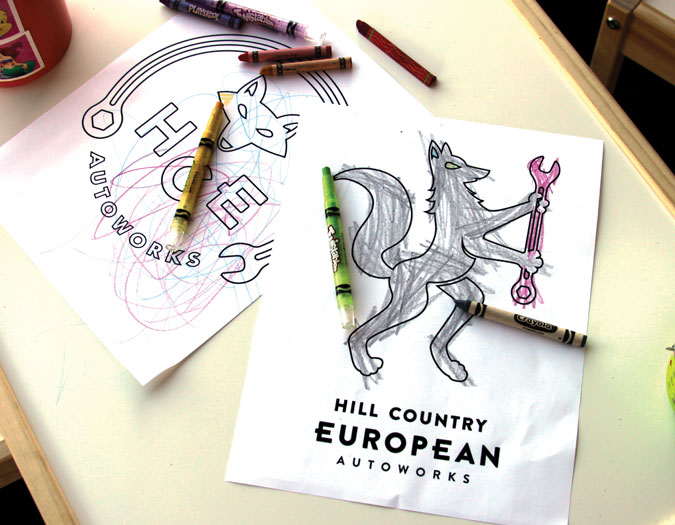 HCE
AUTOWORKS
HILL COUNTRY
EUROPEAN
AUTOWORKS
Crayola
PLAYSKOOL